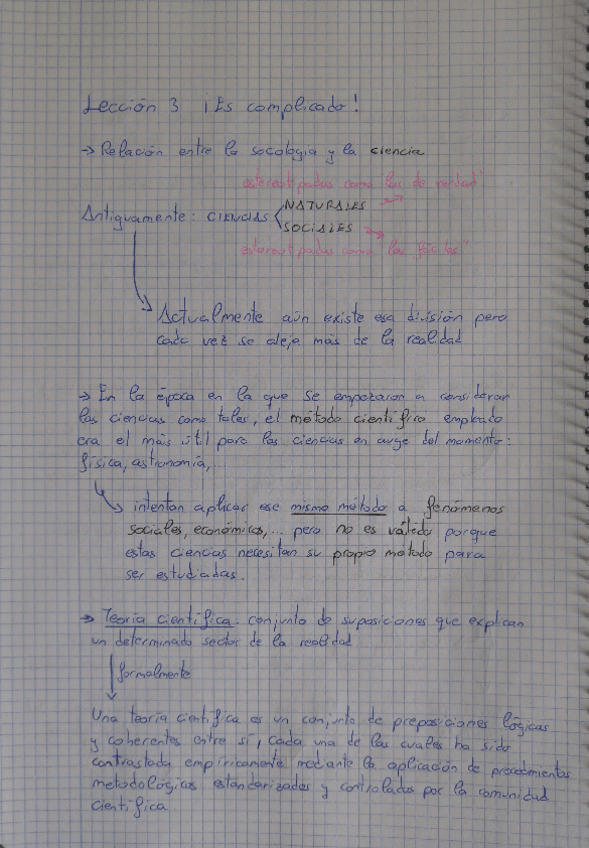 Lección 3 ¡Es complicado!
→ Relación entre la sociología y la ciencia
estereotipadas como las de verdad"
Antiguamente: CIENCIAS < NATURALES →
SOCIALES →
estereotipadas como las "fáciles"
Actualmente aún existe esa división pero
cada vez se aleja más de la realidad
→ En la época en la que se empezaron a considerar
las ciencias como tales, el método científico empleado
era el más útil para las ciencias en auge del momento:
física, astronomía,...
intentan aplicar ese mismo método a fenómenos
sociales, económicos,... pero no es válido porque
estas ciencias necesitan su propio método para
ser estudiadas.
→ Teoría científica: conjunto de suposiciones que explican
un determinado sector de la realidad
formalmente
Una teoría científica es un conjunto de preposiciones lógicas
y coherentes entre sí, cada una de las cuales ha sido
contrastada empíricamente mediante la aplicación de procedimientos
metodológicos estandarizados y controlados por la comunidad
científica.